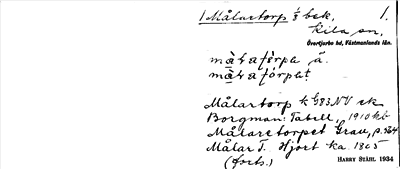 1 Målartorp ⅛ bek. 1.
Kila sn,
Övertjurbo hd, Västmanlands län.
må̀ḷatórpa ä.
må̀ḷatórpat
Målartorp k G83 NV ek
Borgman: Tabell, 1910 kb
Målaretorpet Grau, p. 564
Målar T. Hjort ka 1805
(forts.) HARRY STÅHL 1934